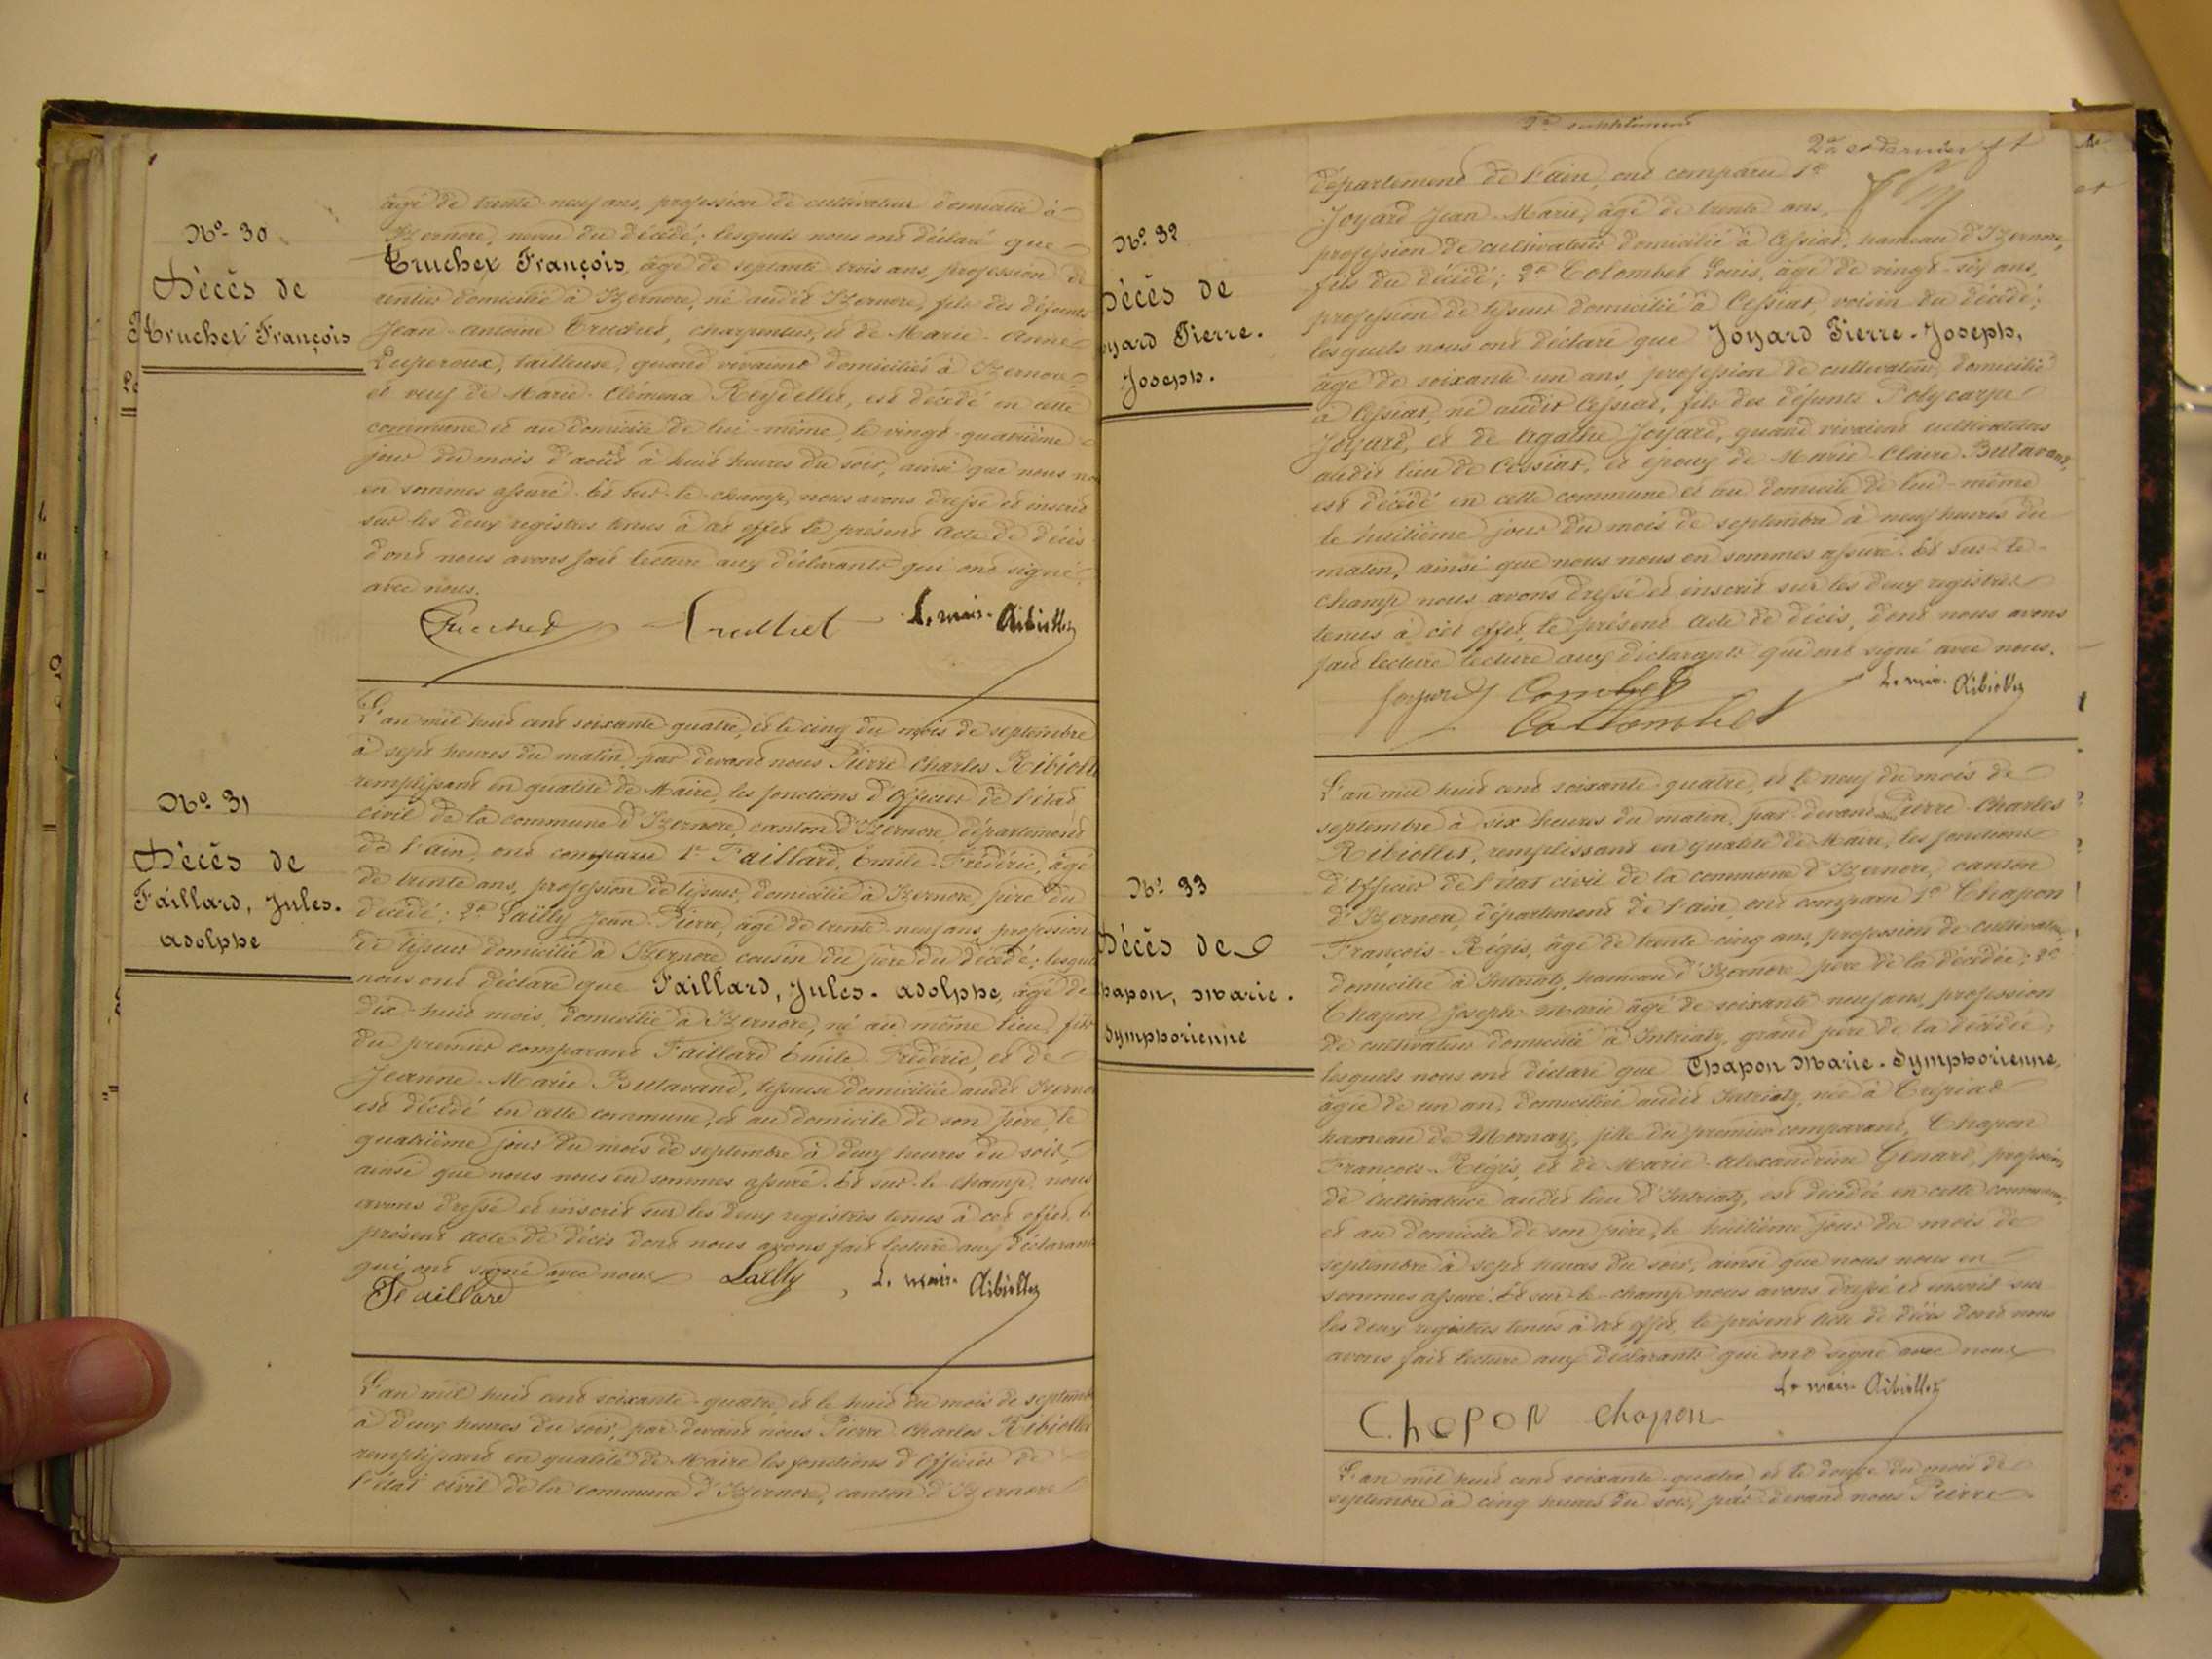 N° 30
Décès de
Truchet François
âgé de trente-neuf ans, profession de cultivateur domicilié à
Izernore, neveu du décédé; lesquels nous ont déclaré que
Truchet François, âgé de septante trois ans, profession de
rentier domicilié à Izernore, né audit Izernore, fils des défunts
Jean-Antoine Truchet, charpentier, et de Marie-Anne
tailleuse, quand vivaient domiciliés à Izernore
et veuf de Marie-Clémena Reydellet, est décédé en cette
commune et au domicile de lui-même, le vingt-quatrième
jour du mois d'août à huit heures du soir, ainsi que nous
en sommes assuré. Et sur-le-champ, nous avons dressé et inscrit
sur les deux registres tenus à cet effet le présent acte de décès
dont nous avons fait lecture aux déclarants qui ont signé
avec nous.
Truchet Le maire Ribiollet
N° 31
Décès de
Faillard, Jules.
Adolphe
L'an mil huit cent soixante-quatre, et le cinq du mois de septembre
à sept heures du matin, par devant nous Pierre-Charles Ribiollet
remplissant en qualité de Maire, les fonctions d'Officier de l'état
civil de la commune d'Izernore, canton d'Izernore, département
de l'Ain, ont comparu 1° Faillard, Emile-Frédéric, âgé
de trente ans, profession de tisseur, domicilié à Izernore, père du
décédé; 2° Lailly Jean-Pierre, âgé de trente-neuf ans, profession
de tisseur domicilié à Izernore, cousin du père du décédé; lesquels
nous ont déclaré que Faillard, Jules-Adolphe, âgé de
dix-huit mois, domicilié à Izernore, né au même lieu, fils
du premier comparant Faillard Emile-Frédéric, et de
Jeanne-Marie Butavand, tisseuse domiciliée audit Izernore
est décédé en cette commune, et au domicile de son père, le
quatrième jour du mois de septembre à deux heures du soir,
ainsi que nous nous en sommes assuré. Et sur-le-champ, nous
avons dressé et inscrit sur les deux registres tenus à cet effet, le
présent acte de décès dont nous avons fait lecture aux déclarants
qui ont signé avec nous Lailly Le maire Ribiollet
Faillard
L'an mil huit cent soixante-quatre, et le huit du mois de septembre
à deux heures du soir, par devant nous Pierre-Charles Ribiollet
remplissant en qualité de Maire les fonctions d'Officier de
l'état civil de la commune d'Izernore, canton d'Izernore
2e et dernier ft
N° 32
Décès de
Joyard Pierre.
Joseph.
département de l'Ain, ont comparu 1°
Joyard Jean-Marie, âgé de trente ans,
profession de cultivateur domicilié à Cessiat, hameau d'Izernore,
fils du décédé; 2° Colombet Louis, âgé de vingt-six ans,
profession de tisseur domicilié à Cessiat, voisin du décédé;
lesquels nous ont déclaré que Joyard Pierre-Joseph,
âgé de soixante-un ans, profession de cultivateur, domicilié
à Cessiat, né audit Cessiat, fils des défunts Polycarpe
Joyard, et de Agathe Joyard, quand vivaient cultivateurs
audit lieu de Cessiat, et époux de Marie-Claire Butavand,
est décédé en cette commune et au domicile de lui-même
le huitième jour du mois de septembre à neuf heures du
matin, ainsi que nous nous en sommes assuré. Et sur-le-
champ nous avons dressé et inscrit sur les deux registres
tenus à cet effet, le présent acte de décès, dont nous avons
fait lecture lecture aux déclarants qui ont signé avec nous.
Joyard Le maire Ribiollet
Collombet
N° 33
Décès de
Chapon, Marie.
Symphorienne
L'an mil huit cent soixante-quatre, et le neuf du mois de
septembre à six heures du matin, par devant nous Pierre-Charles
Ribiollet, remplissant en qualité de Maire, les fonctions
d'Officier de l'état civil de la commune d'Izernore, canton
d'Izernore, département de l'Ain, ont comparu 1° Chapon
François-Régis, âgé de trente-cinq ans, profession de cultivateur,
domicilié à Intriatz, hameau d'Izernore père de la décédée; 2°
Chapon Joseph-Marie âgé de soixante-neuf ans, profession
de cultivateur domicilié à Intriatz, grand père de la décédée;
lesquels nous ont déclaré que Chapon Marie-Symphorienne,
âgée de un an, domiciliée audit Intriatz, née à Crépiat
hameau de Mornay, fille du premier comparant, Chapon
François-Régis, et de Marie-Alexandrine Genard, profession
de cultivatrice audit lieu d'Intriatz, est décédée en cette commune,
et au domicile de son père, le huitième jour du mois de
septembre à sept heures du soir, ainsi que nous nous en
sommes assuré. Et sur-le-champ nous avons dressé et inscrit sur
les deux registres tenus à cet effet, le présent acte de décès dont nous
avons fait lecture aux déclarants qui ont signé avec nous
Le maire Ribiollet
Chapon Chapon
L'an mil huit cent soixante-quatre, et le douze du mois de
septembre à cinq heures du soir, par devant nous Pierre